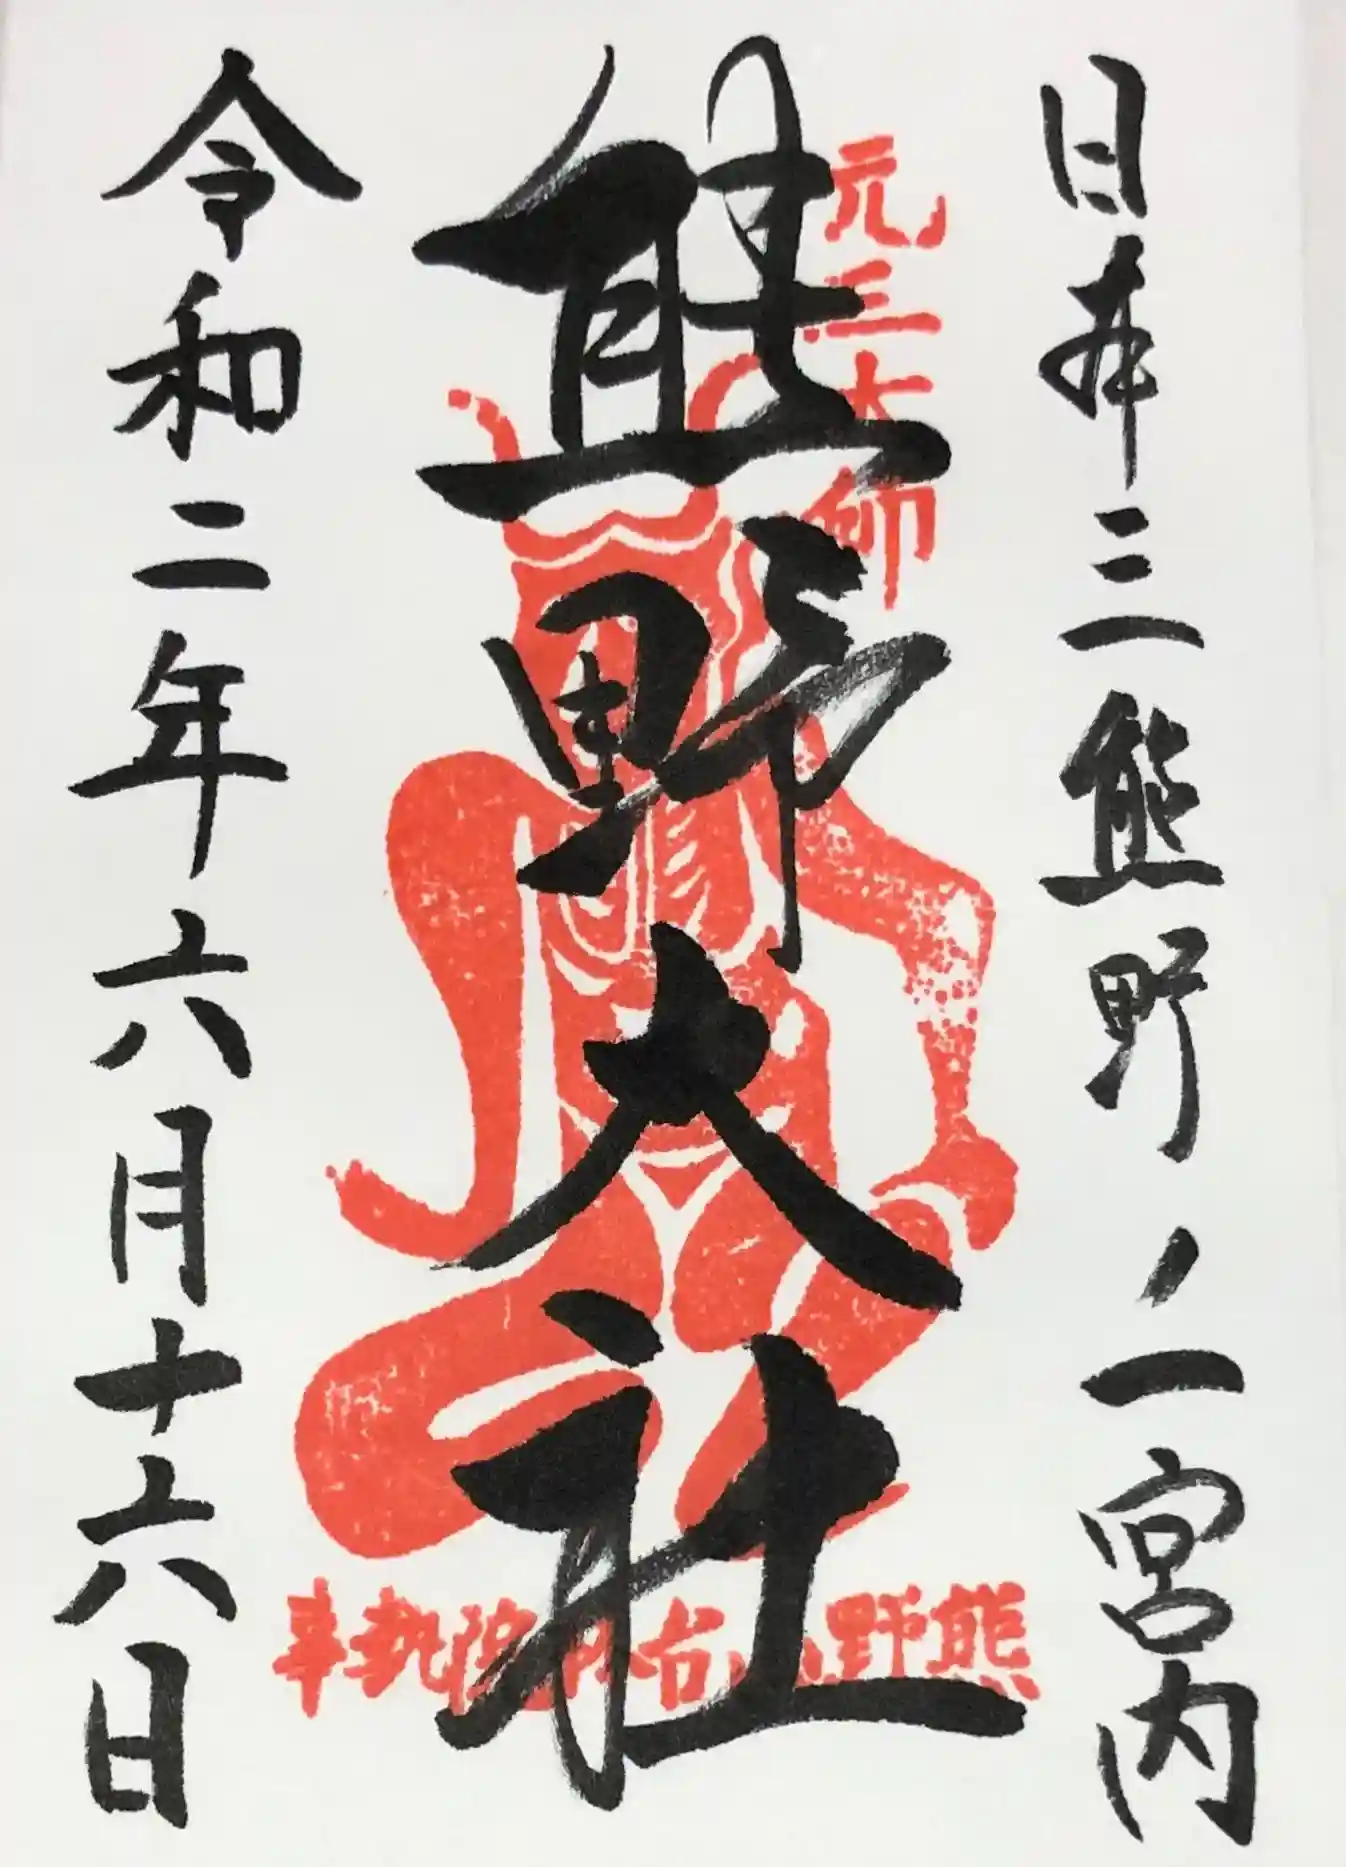 日本三熊野ノ一宮内
元三大師
熊野大社
令和二年六月十六日
熊野
執事